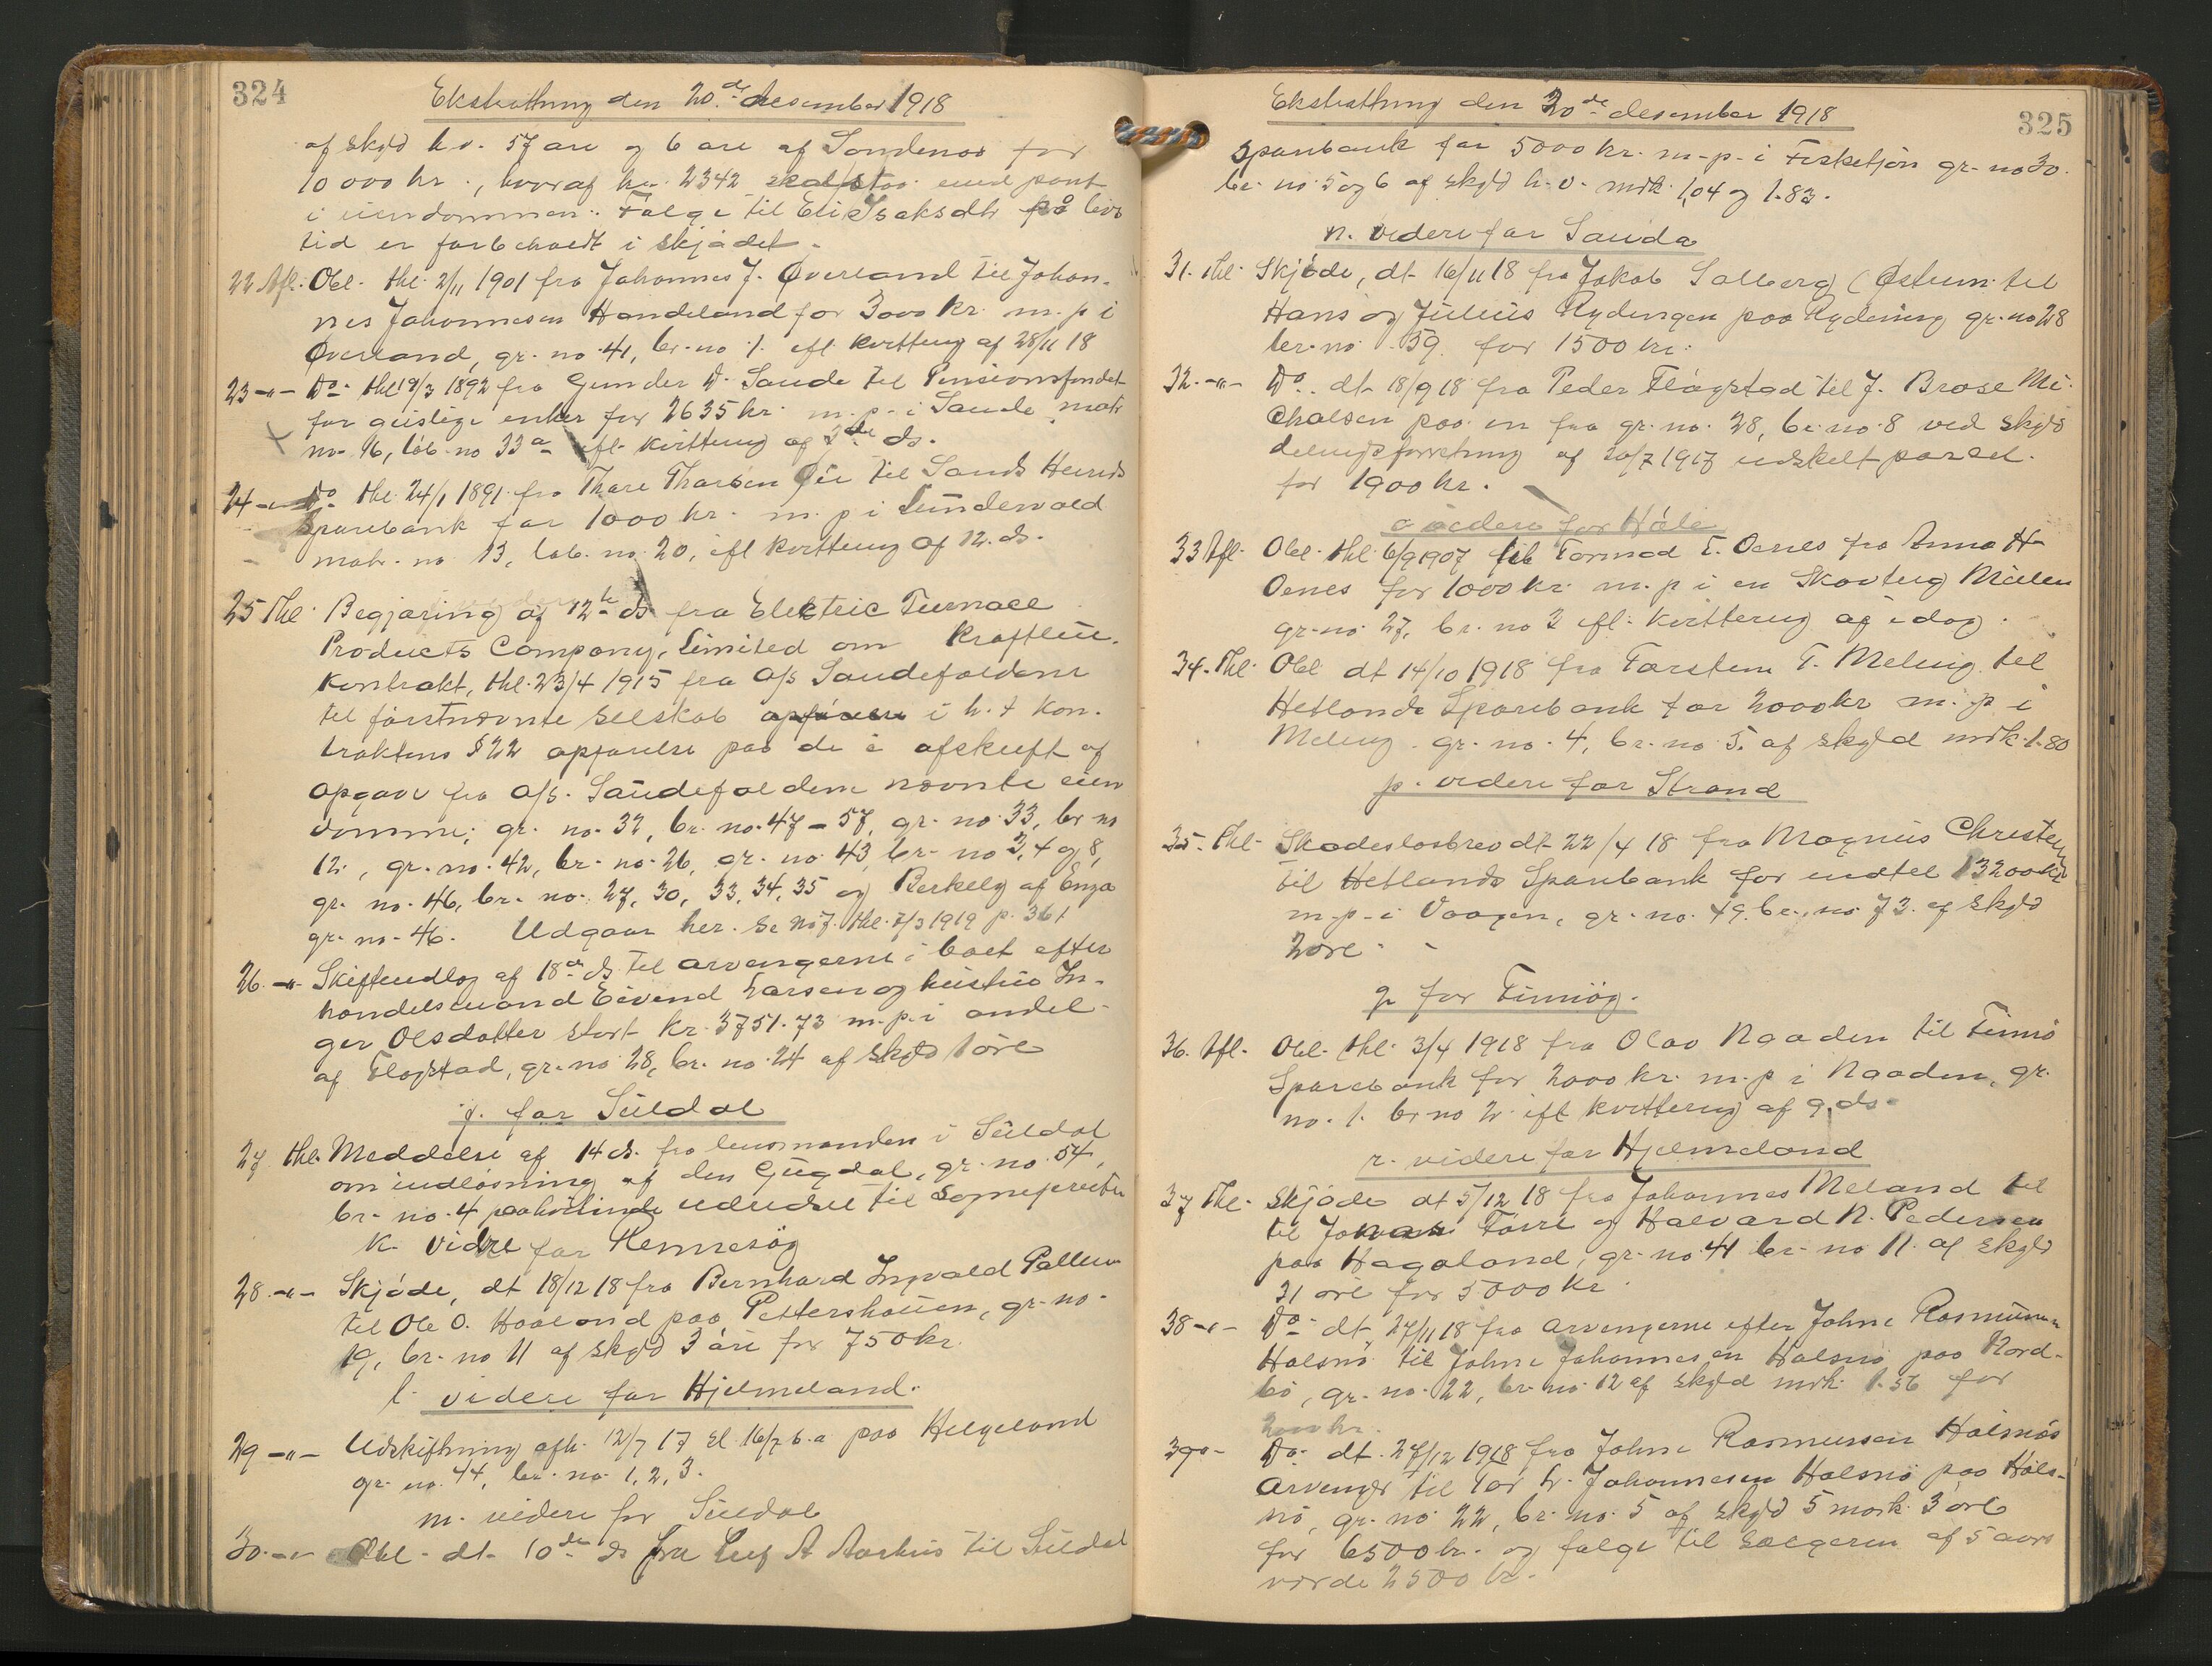 324
Ekstratting den 20.de desember 1918
af skyld hv. 57 øre og 6 øre af Søndenaa for
10 000 kr., hvoraf kr. 2342 skal staa med pant
i eiendommen. Følge til Eli Isaksdtr på livs
tid er forbeholdt i skjødet.
22 Afl. Obl. thl. 2/11 1901 fra Johannes J. Øverland til Johan-
nes Johannesen Handeland for 3000 kr. m. p. i
Øverland, gr. no. 41, br. no. 1. ifl. kvittering af 28/11 18
23 -"- Do. thl 19/3 1892 fra Gunder D. Saude til Pensionsfondet
for geistlige enker for 2635 kr. m. p. i Saude matr
no. 16, løb. no 33a ifl. kvittering af 2de ds.
24 -"- Do. thl. 24/1 1891 fra Thore Thorsen Øie til Sands Herreds
Sparebank for 1000 kr. m. p. i Lundevold
matr. no 13, løb. no. 20, ifl kvittering af 12. ds.
25 Thl. Begjæring af 12te ds fra Electric Furnace
Products Company, Limited om Kraftleie-
kontrakt, thl. 23/4 1915 fra A/S Saudefaldene
til førstnævnte selskab opføres i h. t kon-
traktens § 22 opførelse paa de i afskrift af
opgave fra A/S. Saudefaldene nævnte eien
domme; gr. no. 32, br. no. 47 - 57, gr. no. 33, br no
12., gr. no. 42, br. no. 26, gr. no. 43, br. no 3, 4 og 8,
gr. no. 46, br. no. 27, 30, 33, 34, 35 og Berkely af Enga
gr. no. 46. Udgaar her. Se no 7. thl. 7/3 1919 p. 361
26. -"- Skifteudlæg af 18de ds til arvingerne i boet efter
handelsmand Eivind Larsen og hustru In-
ger Olsdatter stort kr. 3751.73 m. p. i andel
af Flogstad, gr. no 28, br. no. 24 af skyld 1 øre
j. for Suldal
27 thl. Meddelse af 14 ds. fra lensmanden i Suldal
om indløsning af den Gugdal, gr. no. 54,
br. no. 4 paahvilende udredsel til Sognepresten
k. Videre for Rennesøy
28. -"- Skjøde, dt 18/12 18 fra Bernhard Ingvald
til Ole O. Haaland paa Pettershaugen, gr. no.
19, br. no 11 af skyld 3 øre for 750 kr.
l. videre for Hjelmeland.
29 -"- Udskiftning afh. 12/7 17 sl. 16/7 b. a paa Helgeland
gr. no. 44, br. no. 1, 2, 3.
m. videre for Suldal
30. -"- Obl. dt. 10de ds fra Leif A Aarhus til Suldal
325
Ekstratting den 20de desember 1918
Sparebank for 5000 kr. m. p. i Fisketjøn gr. no 30.
br. no. 5 og 6 af skyld h. v. mrk. 1,04 og 1.83.
n. videre for Sauda
31. thl. Skjøde, dt. 16/11 18 fra Jakob Solberg (Østrem til
Hans og Julius Rydningen paa Rydning gr. no 28
br. no. 59. for 1500 kr.
32. -"- Do. dt. 18/9 18 fra Peder Fløgstad til J. Brose Mi-
chalsen paa en fra gr. no. 28, br. no. 8 ved skyld
delingsforretning af 20/7 1917 udskelt parsel.
for 1900 kr.
o. videre for Høle
33 Afl. Obl. thl. 6/9 1907 til Tormod T. Oenes fra Anna H
Oenes for 1000 kr. m. p i en Skovteig Mielen
gr. no. 27, br. no 2 ifl. kvittering af i dag.
34. Thl. Obl dt 14/10 1918 fra Torstein T. Meling til
Hetlands Sparebank for 2000 kr m. p i
Meling gr. no. 4, br. no 5. af skyld mrk. 1.80
p. videre for Strand
35. Thl. Skadesløsbrev dt. 22/4 18 fra Magnus Christen
til Hetlands Sparebank for indtil 13200 kr
m. p. i Vaagen, gr. no. 49. br. no 73. af skyld
2 øre.
q. for Finnøy.
36. Afl. Obl. thl. 3/4 1918 fra Olav Naaden til Finnø
Sparebank for 2000 kr. m. p i Naaden, gr.
no. 1. br no 2 ifl kvittering af 9. ds.
r. videre for Hjelmeland
37 Thl. Skjøde dt 5/12 18 fra Johannes Meland til
til Jonas Førre og Halvard N. Pedersen
paa Hagaland, gr. no 41 br. no 11. af skyld
31 øre for 5000 kr.
38 -"- Do. dt. 27/11 18 fra arvingerne efter Johne Rasmussen
Halsnø til Johne Johannesen Halsnø paa Nord-
bø, gr. no. 22, br. no. 12 af skyld mrk. 1.56 for
2000 kr.
39 -"- Do. dt. 27/12 1918 fra Johne Rasmussen Halsnøs
Arvinger til Tor L. Johannesen Halsnø paa Hals-
nø, gr. no 22, br. no. 5 af skyld 5 mark 3 øre
for 6500 kr. og følge til sælgeren af 5 aars
værde 2500 kr.